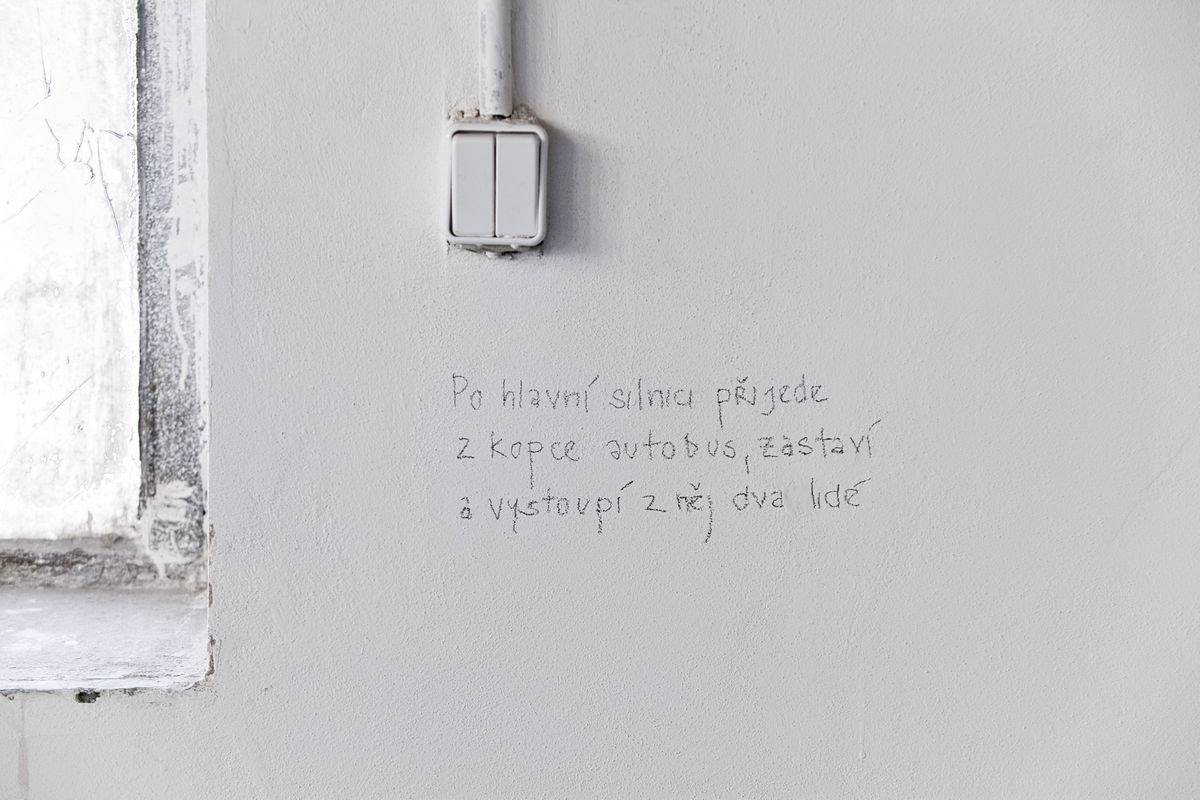 Po hlavní silnici přijede
z kopce autobus, zastaví
a vystoupí z něj dva lidé